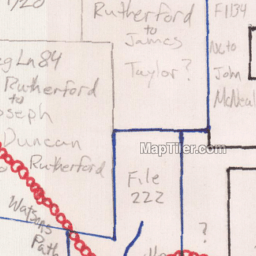 1720
Rutherford
to
James
Taylor?
F1134
Ne to
John
McNeal
Ln 84
Rutherford
to
Joseph
Duncan
Rutherford
MapTiler.com
File
222
Watsons
Path
?